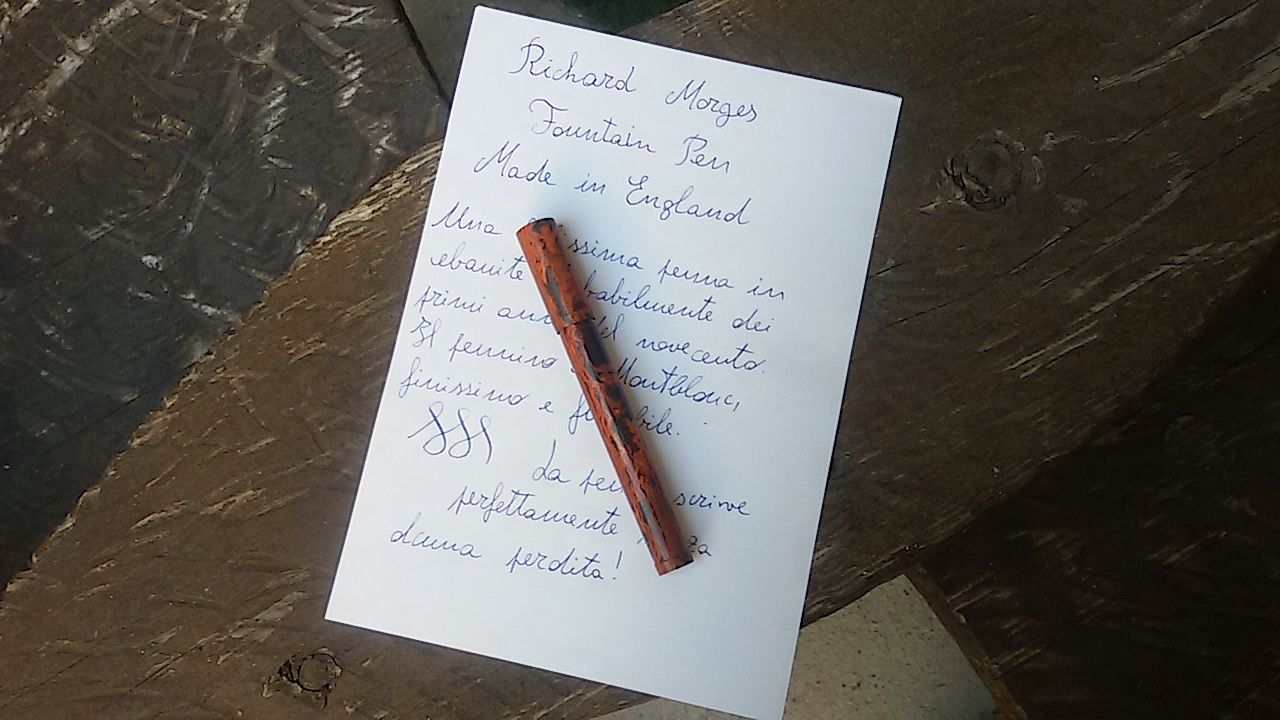 Richard Morges
Fountain Pen
Made in England
Una ssima penna in
ebanite babilmente dei
primi ann del novecento.
Il pennino Montblanc,
finissimo e bile.
La pen scrive
perfettamente za
alcuna perdita!